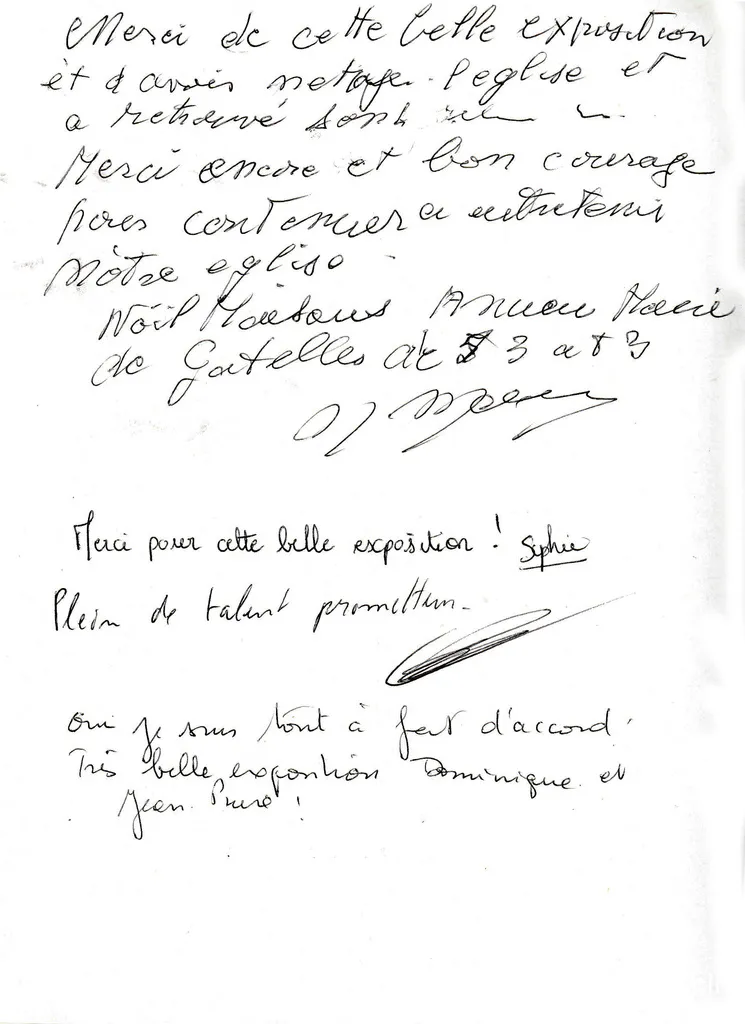 Merci de cette belle exposition
et d avoir netoye l'eglise et
a retrouvé sont
Merci encore et bon courage
pour contenuer a entretenir
nôtre eglise
Nöel
de Gatelles de 3 at 3
Merci pour cette belle exposition ! Sophie
Plein de talent prometteur.
Oui je suis tout à fait d'accord.
Très belle exposition Dominique et
Jean Pierre !